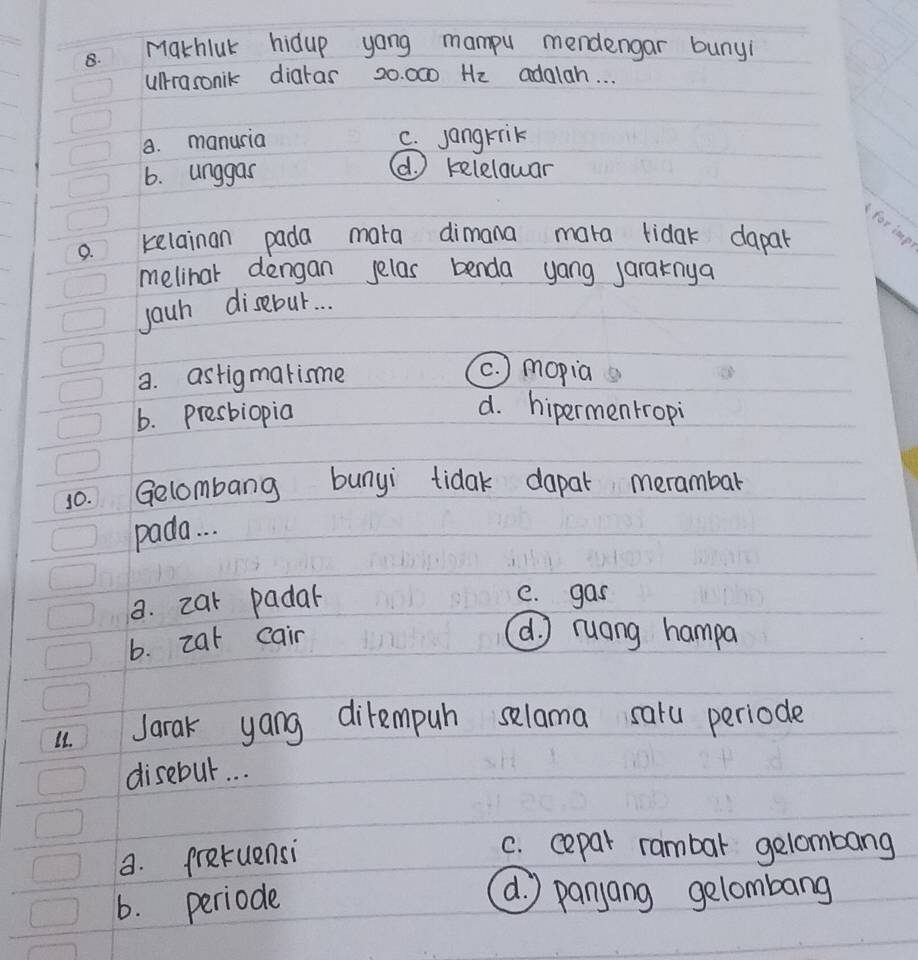 8. Makhluk hidup yang mampu mendengar bunyi
ultrasonik diatas 20.000 Hz adalah...
a. manusia c. jangkrik
b. unggas d. kelelawar
9. kelainan pada mata dimana mata tidak dapat
melihat dengan jelas benda yang jaraknya
jauh disebut...
a. astigmatisme c. mopia
b. presbiopia d. hipermentropi
10. Gelombang bunyi tidak dapat merambat
pada...
a. zat padat c. gas
b. zat cair d. ruang hampa
11. Jarak yang ditempuh selama satu periode
disebut...
a. frekuensi c. cepat rambat gelombang
b. periode d. panjang gelombang
for